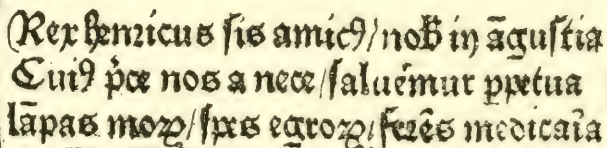 Rex henricus sis amicꝰ/ nob̄ in āgustia
Cuiꝰ p̄ce nos a nece/ saluemur ꝑpetua
lāpas moꝝ/ spes egroꝝ/ ferēs medicaīa